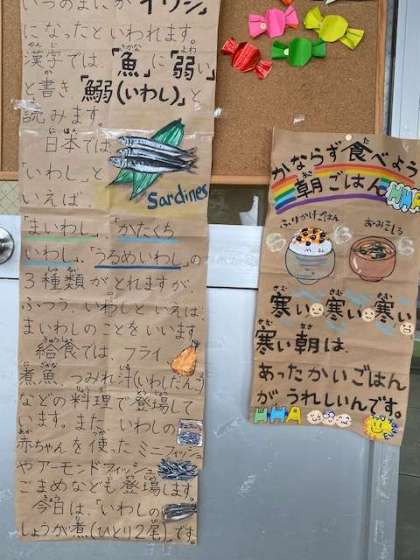 いつのまにか「イワシ」
になったといわれます。
漢字では、「魚」に「弱い」
と書き、「鰯(いわし)」と
読みます。
日本では
「いわし」と
いえば、
Sardines
「まいわし」、「かたくち
いわし」、「うるめいわし」の
3種類がとれますが、
ふつう、いわしといえば、
まいわしのことをいいます。
給食では、フライ、
煮魚、つみれ汁(いわしだんご)
などの料理で登場して
います。また、いわしの
赤ちゃんを使ったミニフィッシュ
やアーモンドフィッシュ、
ごまめなども登場します。
今日は、「いわしの
しょうが煮(ひとり2尾)」です。
かならず食べよう
朝ごはん
ふりかけごはん
おみそしる
寒い 寒い 寒い
寒い朝は、
あったかいごはん
がうれしいんです。